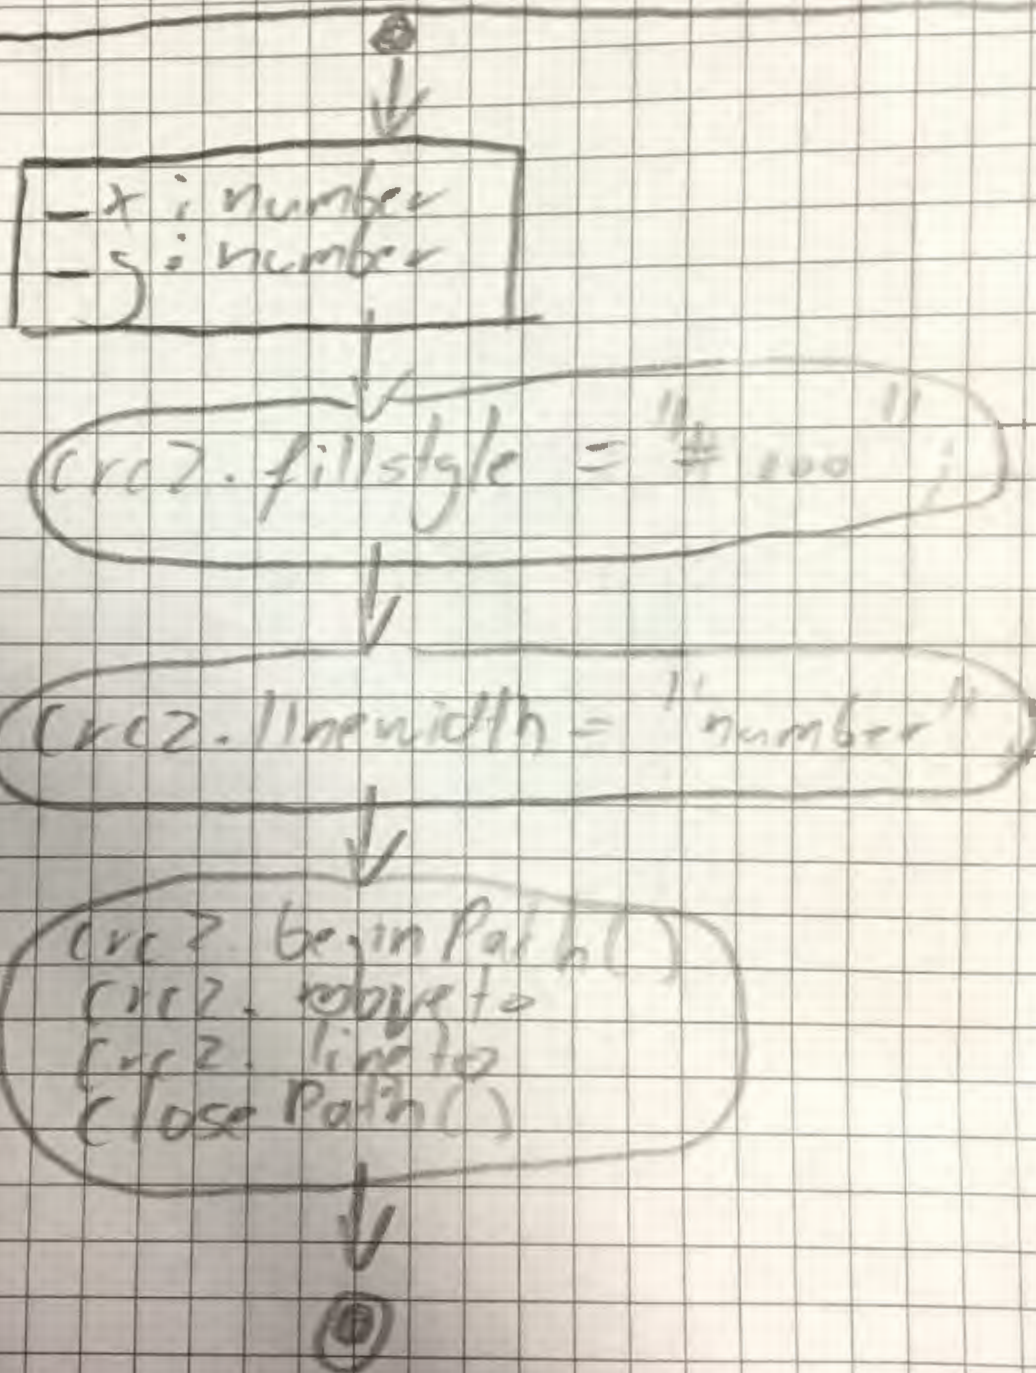 _x : number
_y : number
crc2. fillstyle = "# 000" ;
crc2. linewidth = "number" ;
crc2. beginPath()
crc2. moveto
crc2. lineto
closePath()